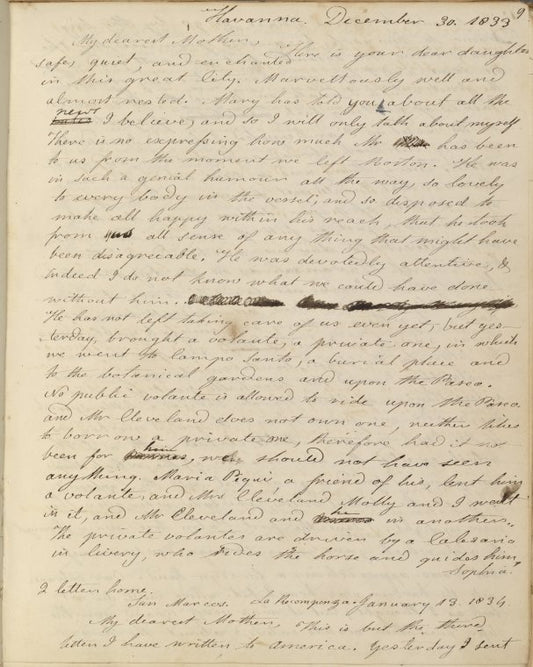 9
Havanna. December 30. 1833
My dearest Mother,
Here is your dear daughter
safe, quiet, and enchanted
in this great City. Marvellously well and
almost rested. Mary has told you about all the
news
I believe, and so I will only talk about myself
There is no expressing how much Mr has been
to us from the moment we left Boston. He was
in such a genial humour all the way, so lovely
to every body in the vessel, and so disposed to
make all happy within his reach, that he took
from all sense of any thing that might have
been disagreeable. He was devotedly attentive, &
indeed I do not know what we could have done
without him.
He has not left taking care of us even yet; but yes-
terday, brought a volante, a private one, in which
we went to Campo Santo, a burial place and
to the botanical gardens and upon the Paseo.
No public volante is allowed to ride upon the Paseo
and Mr Cleveland does not own one, neither likes
to borrow a private one, therefore had it not
been for him, we should not have seen
any thing. Maria Pique, a friend of his, lent him
a volante, and Mrs Cleveland Molly and I went
in it, and Mr Cleveland and he in another.
The private volantes are driven by a Calesaria
in livery, who rides the horse and guides him
Sophia."
2 letter home.
San Marcos. La Recompenza. January 13. 1834
My dearest Mother, This is but the third
letter I have written to America. Yesterday I sent